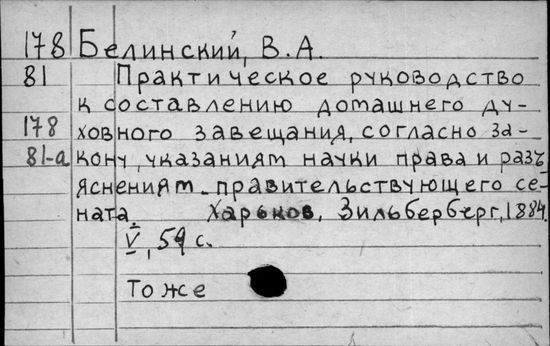 178 Белинский, В.А.
81 Практическое руководство
к составлению домашнего ду-
178 ховного завещания, согласно за-
81-а кону, указаниям науки права и разъ
яснениям правительствующего се-
ната. Харьков, Зильберберг, 1884.
V, 59 с.
То же